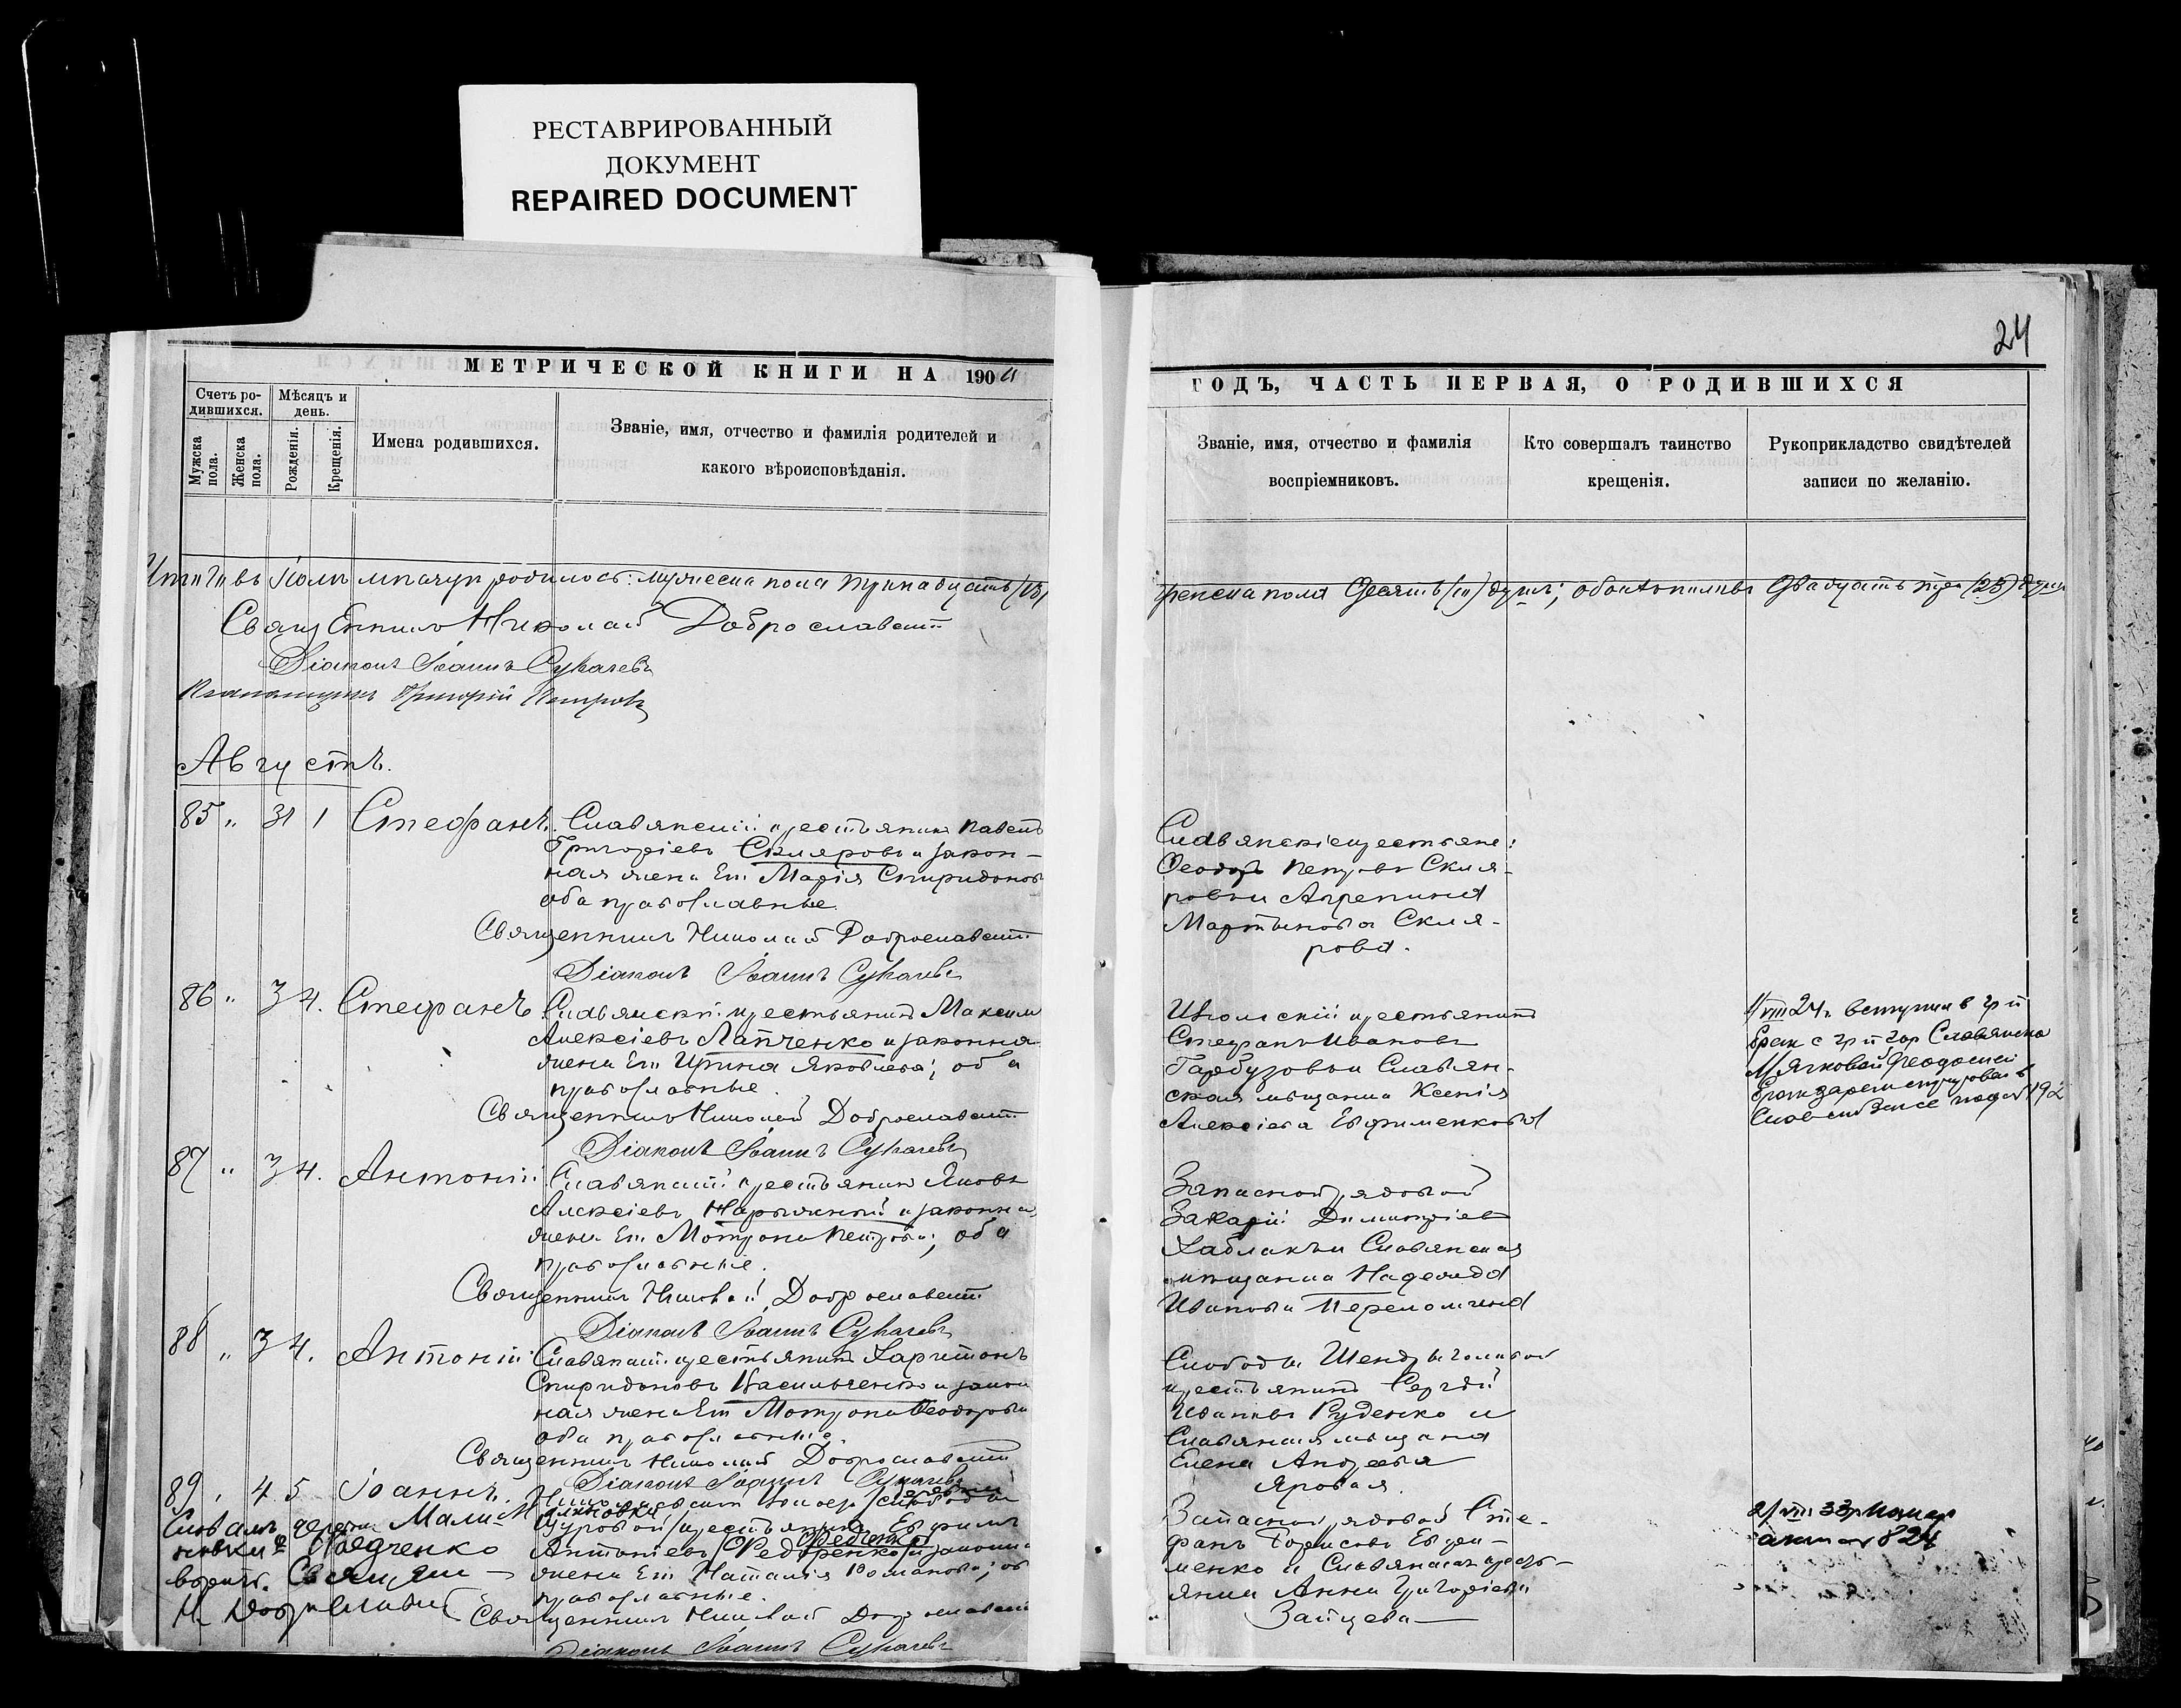 РЕСТАВРИРОВАННЫЙ
ДОКУМЕНТ
REPAIRED DOCUMENT
24
МЕТРИЧЕСКОЙ КНИГИ НА 190
Счетъ ро-
дившихся.
Мѣсяцъ и
день.
Мужска
пола.
Женска
пола.
Рожденія.
Крещенія.
Имена родившихся.
Званіе, имя, отчество и фамилія родителей и
какого вѣроисповѣданія.
родилось: мужеска пола тринадцать (13)
Священникъ Николай Доброславскій
Діаконъ Іоаннъ Сукачевъ
Псаломщикъ Григорій Петровъ
Августъ.
85 " 31 1 Стефанъ. Славянскій крестьянинъ Павелъ
Григоріевъ Скляровъ и закон-
ная жена его Марія Спиридонова
оба православные.
Священникъ Николай Доброславскій
Діаконъ Іоаннъ Сукачевъ
86 " 3 4. Стефанъ. Славянскій крестьянинъ Максим
Алексіевъ Лапченко и законная
жена его Ирина Яковлева; оба
православные.
Священникъ Николай Доброславскій
Діаконъ Іоаннъ Сукачевъ
87 " 3 4. Антоній. Славянскій крестьянинъ Яковъ
Алексіевъ Нарыжный и законная
жена его Мотрона Петрова; оба
православные.
Священникъ Николай Доброславскій
Діаконъ Іоаннъ Сукачевъ
88 " 3 4. Антоній Славянскій крестьянинъ Харитонъ
Спиридоновъ Васильченко и закон
ная жена его Мотрона Феодорова
оба православные.
Священникъ Николай Доброславскій
Діаконъ Іоаннъ Сукачевъ
89 " 4 5 Іоаннъ.
крестьянинъ Ефимъ
Антоніевъ Федоренко Федченко и законная
жена его Наталія Романова; оба
православные.
Священникъ Николай Доброславскій
Діаконъ Іоаннъ Сукачевъ
Словамъ деревни Мали-
новки и Федченко
вѣрить. Священ
Н. Доброславскій
ГОДЪ, ЧАСТЬ ПЕРВАЯ, О РОДИВШИХСЯ
Званіе, имя, отчество и фамилія
воспріемниковъ.
Кто совершалъ таинство
крещенія.
Рукоприкладство свидѣтелей
записи по желанію.
женска пола десять (10) душъ; обоего пола двадцать три (23) души
Славянскіе крестьяне:
Феодоръ Петровъ Скля-
ровъ и Агрепина
Мартынова Скля-
рова.
крестьянинъ
Стефанъ Ивановъ
Гарбузовъ и Славян-
ская мѣщанка Ксенія
Алексіева Ефименкова
Запасной рядовой
Захарій Димитріев
Хаблакъ и Славянская
мѣщанка Надежда
Иванова
Слободы
крестьянинъ Сергѣй
Ивановъ Руденко и
Славянская мѣщанка
Елена Андреева
Яровая.
Запасной рядовой Сте-
фанъ Борисовъ Ефи-
менко и Славянская кресть-
янка Анна Григоріева
Зайцева
VIII 24 г. вступил в
брак с гр. гор. Славянска
Мячковой Феодосией